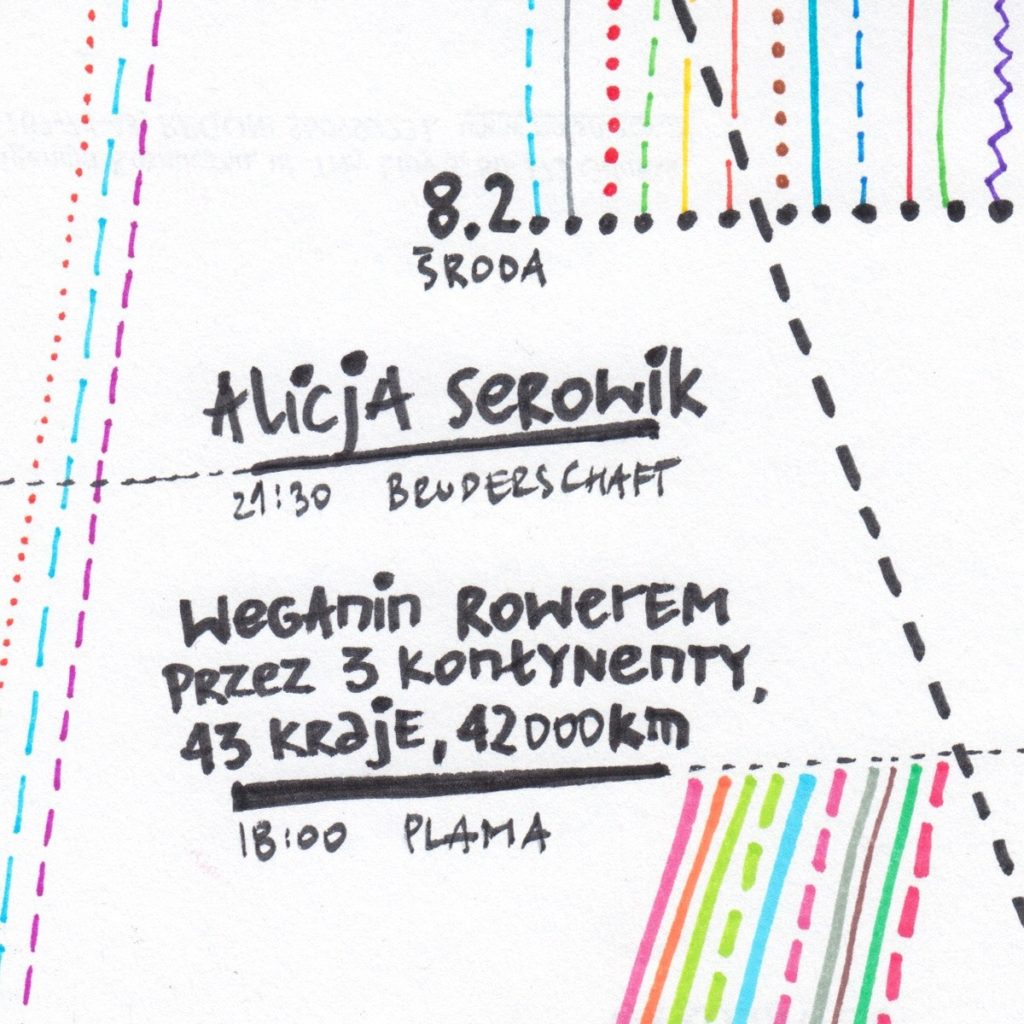 8.2
ŚRODA
ALicjA SeROWiK
21:30 BRUDERSCHAFT
WeGAnin ROWerEM
PRzez 3 KontYNenTY,
43 KRajE, 42000km
18:00 PLAMA